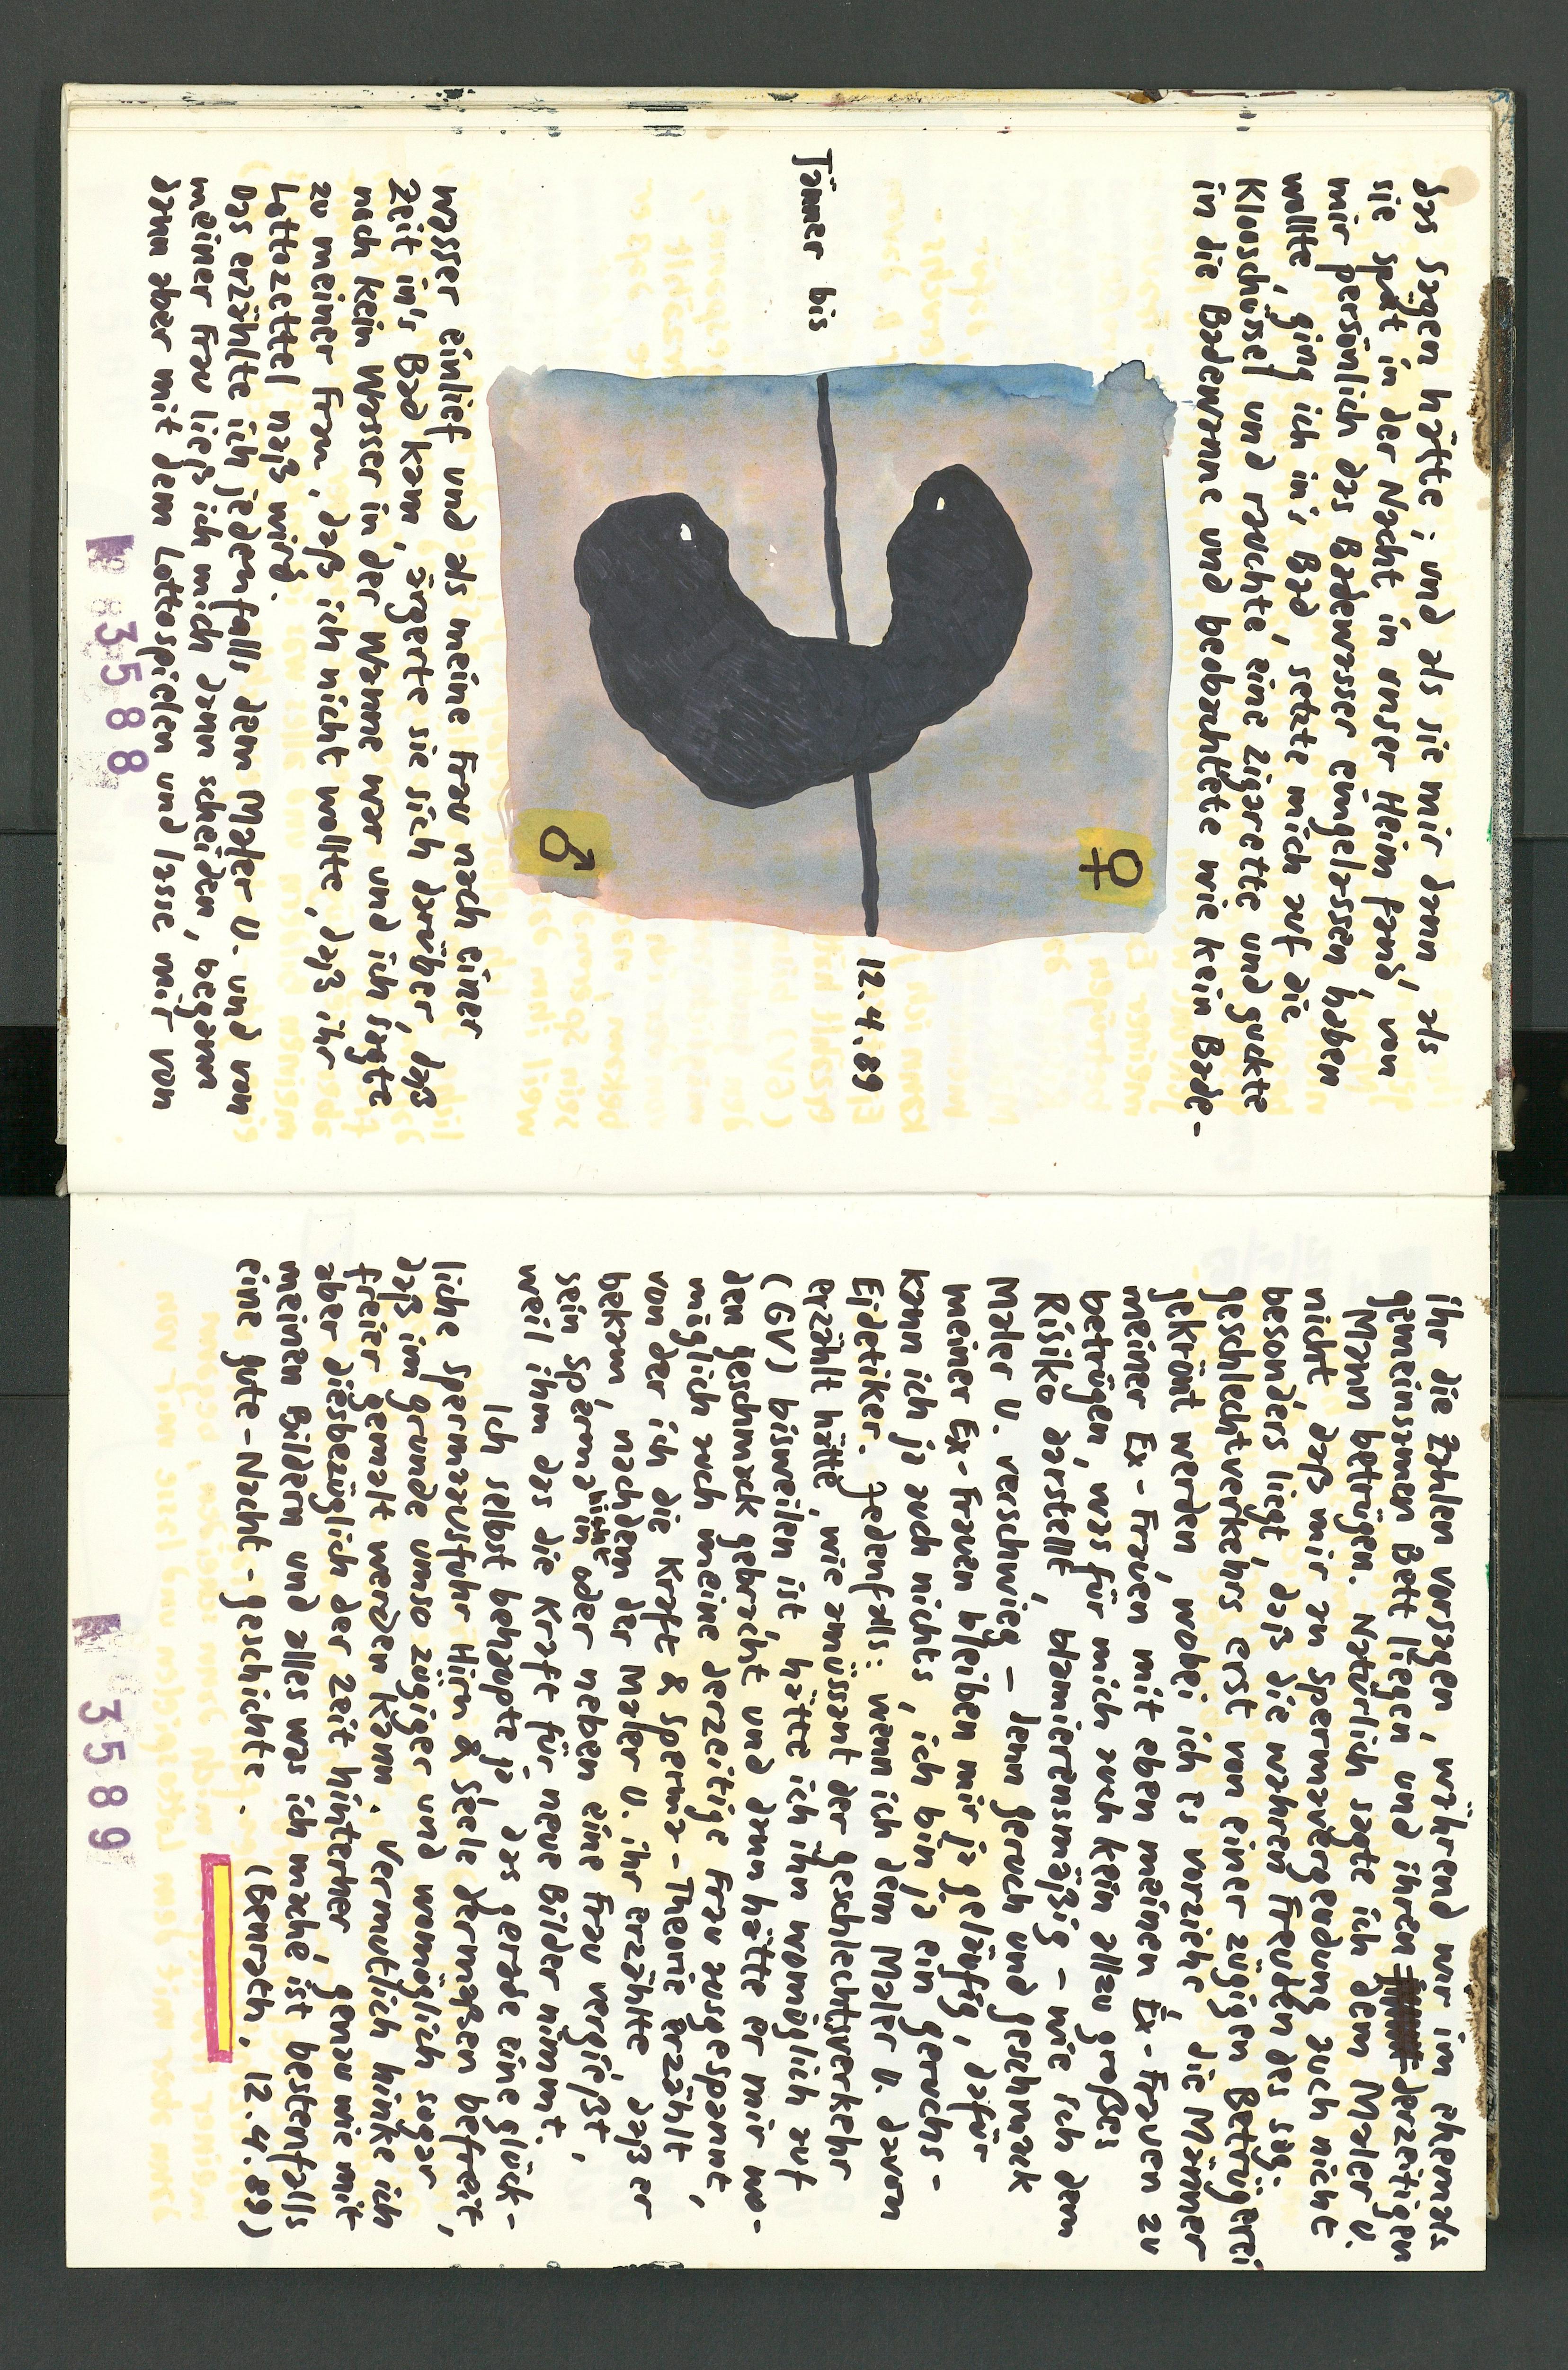 das sagen hätte; und als sie mir dann, als
sie spät in der Nacht in unser Heim fand, von
mir persönlich das Badewasser eingelassen haben
wollte, ging ich in's Bad, setzte mich auf die
Kloschüssel und rauchte eine Zigarette und guckte
in die Badewanne und beobachtete wie kein Bade-
Jänner bis
12.4.89
♀
♂
wasser einlief und als meine Frau nach einer
Zeit in's Bad kam, ärgerte sie sich darüber, daß
noch kein Wasser in der Wanne war und ich sagte
zu meiner Frau, daß ich nicht wollte, daß ihr
Lottozettel naß wird.
Das erzählte ich jedenfalls dem Maler U. und von
meiner Frau ließ ich mich dann scheiden, begann
dann aber mit dem Lottospielen und lasse mir von
3588
ihr die Zahlen vorsagen, während wir im ehemals
gemeinsamen Bett liegen und ihren derzeitigen
Mann betrügen. Natürlich sagte ich dem Maler U.
nicht, daß mir an Spermavergeudung auch nicht
besonders liegt, daß die wahren Freuden des sog.
Geschlechtverkehrs erst von einer zügigen Betrügerei
gekrönt werden, wobei ich es vorziehe, die Männer
meiner Ex-Frauen mit eben meinen Ex-Frauen zu
betrügen, was für mich auch kein allzu großes
Risiko darstellt, blamierensmäßig - wie ich dem
Maler U. verschwieg - denn Geruch und Geschmack
meiner Ex-Frauen bleiben mir ja geläufig, dafür
kann ich ja auch nichts, ich bin ja ein Geruchs-
Eidetiker. Jedenfalls: wenn ich dem Maler U. davon
erzählt hätte, wie amüsant der Geschlechtsverkehr
(GV) bisweilen ist, hätte ich ihn womöglich auf
den Geschmack gebracht und dann hätte er mir wo-
möglich auch meine derzeitige Frau ausgespannt,
von der ich die Kraft & Sperma-Theorie erzählt
bekam, nachdem der Maler U. ihr erzählte daß er
sein Sperma nicht in oder neben eine Frau vergießt,
weil ihm das die Kraft für neue Bilder nimmt.
Ich selbst behaupte ja, das gerade eine glück-
liche Spermaausfuhr Hirn & Seele dermaßen befreit,
daß im Grunde umso zügiger und womöglich sogar
freier gemalt werden kann. Vermutlich hinke ich
aber diesbezüglich der Zeit hinterher, genau wie mit
meinen Bildern und alles was ich mache ist bestenfalls
eine gute-Nacht-Geschichte. (Benrath, 12.4.89)
3589